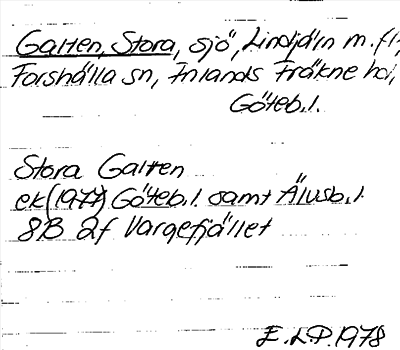 Galten, Stora, sjö, Lindjärn m.fl.,
Forshälla sn, Inlands Fräkne hd,
Göteb.l.
Stora Galten
ek (1977) Göteb.l. samt Älvsb.l.
8B 2f Vargefjället
E.L.P. 1978